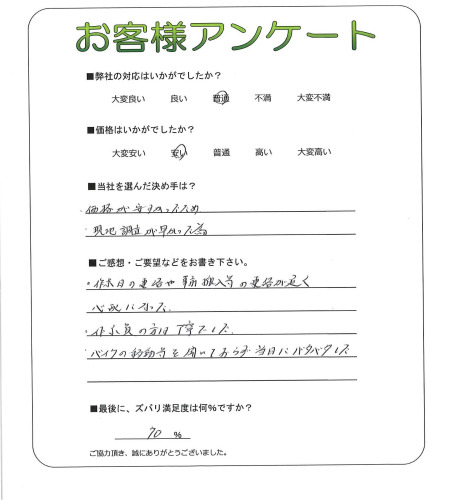 お客様アンケート
■弊社の対応はいかがでしたか？
大変良い 良い 普通 不満 大変不満
■価格はいかがでしたか？
大変安い 安い 普通 高い 大変高い
■当社を選んだ決め手は？
・価格が安かったため
・現地調査が早かった為
■ご感想・ご要望などをお書き下さい。
・作業日の連絡や事前搬入等の連絡が遅く
心配になった.
・作業員の方は丁寧でした.
・バイクの移動等を聞いておらず当日にバタバタした
■最後に、ズバリ満足度は何%ですか？
70 %
ご協力頂き、誠にありがとうございました。